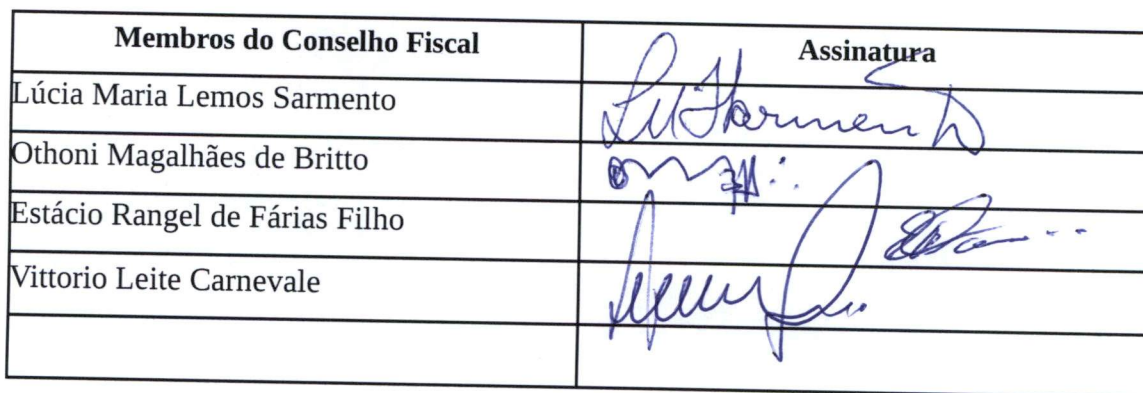 Membros do Conselho Fiscal Assinatura
Lúcia Maria Lemos Sarmento
Othoni Magalhães de Britto
Estácio Rangel de Fárias Filho
Vittorio Leite Carnevale